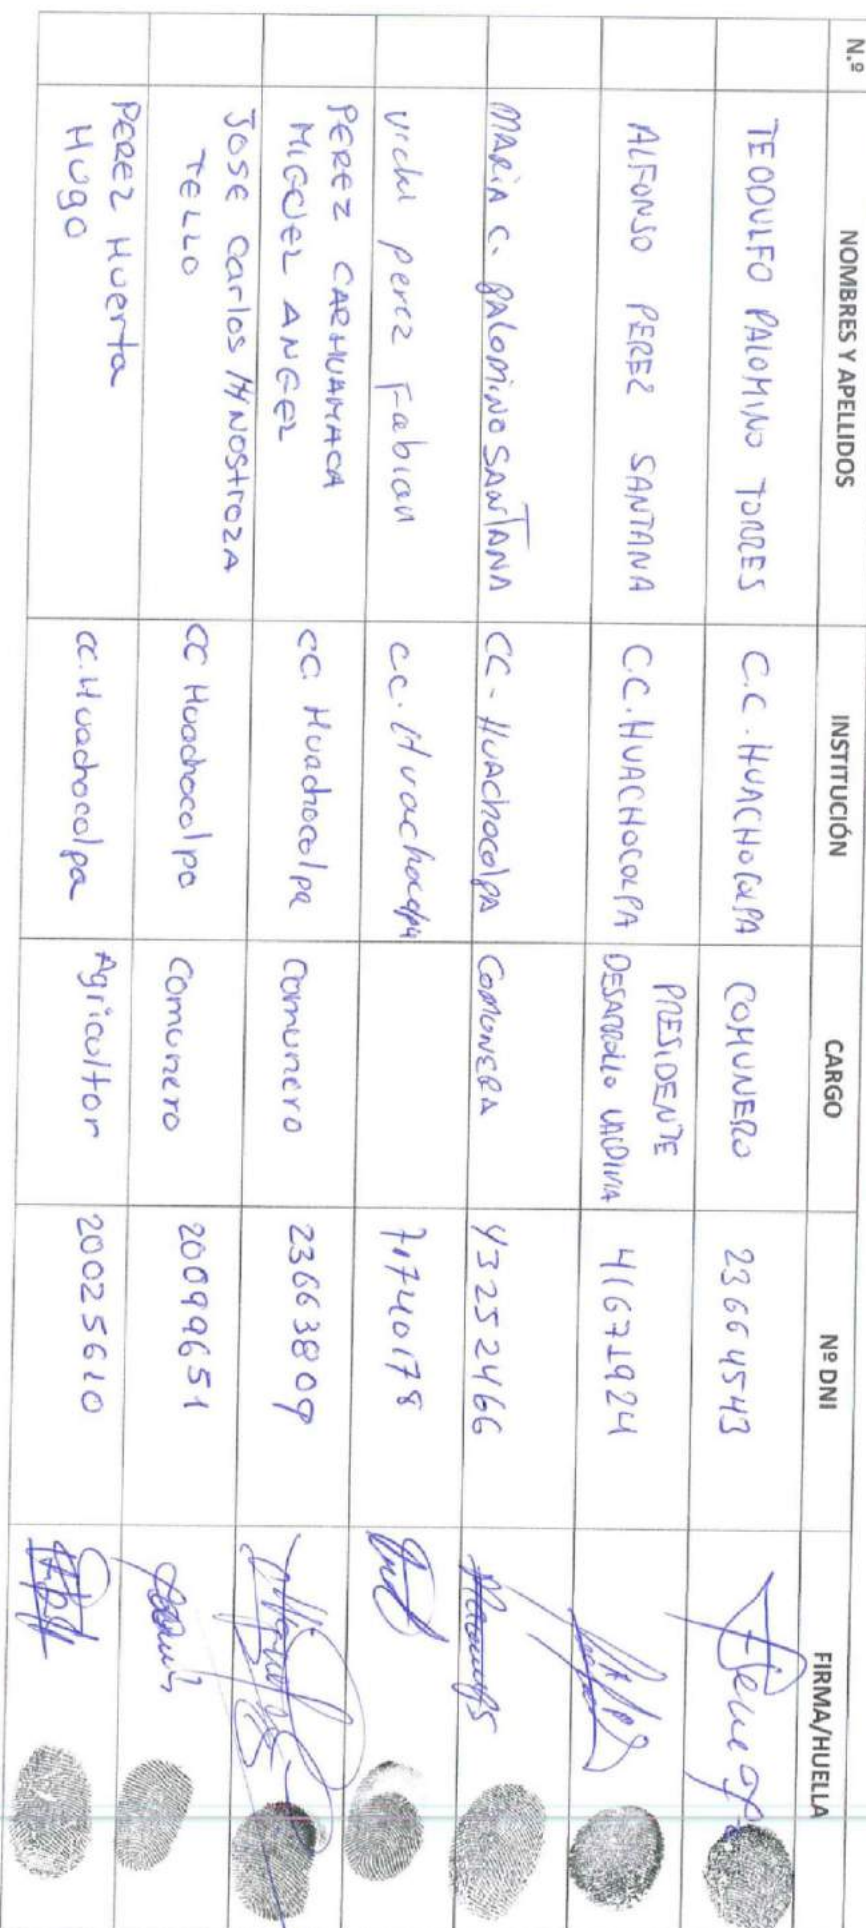 N.º NOMBRES Y APELLIDOS INSTITUCIÓN CARGO Nº DNI FIRMA/HUELLA
TEODULFO PALOMINO TORRES C.C. HUACHOCOLPA COMUNERO 23664543
ALFONSO PEREZ SANTANA C.C. HUACHOCOLPA PRESIDENTE
DESARROLLO VALDIVIA 41671924
MARIA C. PALOMINO SANTANA CC - HUAchocolpA COMUNERA 43252466
Vichi perez Fabian cc. Huachocolpa 71740178
PEREZ CARHUAMACA
MIGUEL ANGEL CC. Huachocolpa Comunero 23663809
JOSE Carlos HYNOStroZA
TELLO CC Huachocolpa Comunero 20099651
PEREZ Huerta
Hugo CC. Huachocolpa Agricultor 20025610